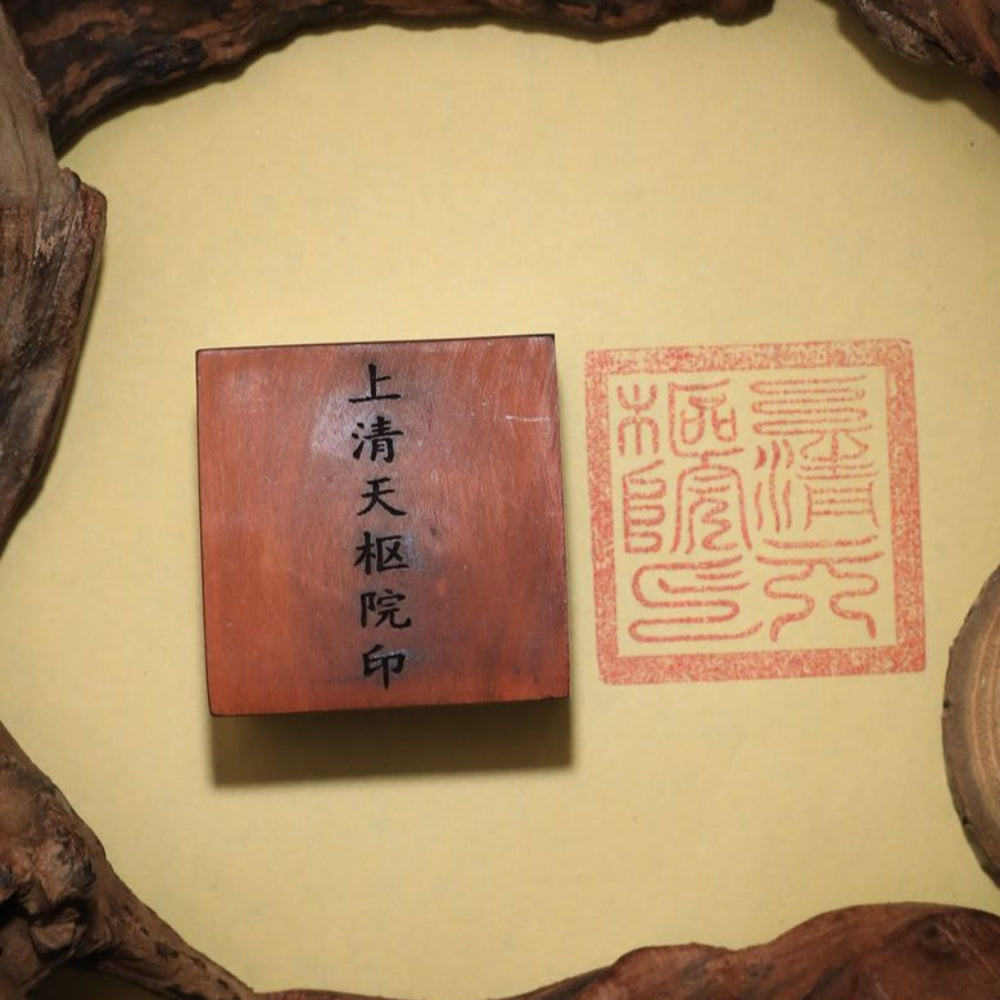 上清天枢院印
上清天
樞院印